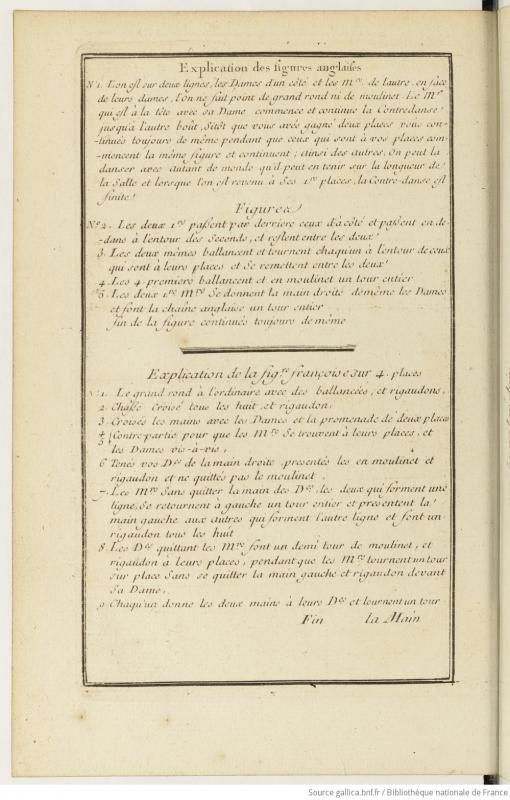 Explication des figures anglaises
N.º 1. L'on est sur deux lignes, les Dames d'un côté et les M.rs de l'autre en face
de leurs dames, l'on ne fait point de grand rond ni de moulinet. Le M.r
qui est à la tête avec sa Dame commence et continue la Contredanse
jusqu'à l'autre boût, Sitôt que vous avés gagné deux places vous con-
-tinués toujours de même pendant que ceux qui sont à vos places com-
-mencent la même figure et continuent; ainsi des autres. On peut la
danser avec autant de monde qu'il peut en tenir sur la longueur de
la Salle et lorsque l'on est revenu à Ses 1.res places, la Contre-danse est
finite
Figures
N.º 2. Les deux 1.rs passent par derriere ceux d'à côté et passent en de-
-dans à l'entour des Seconds, et restent entre les deux
3. Les deux mêmes ballancent et tournent chaqu'un à l'entour de ceux
qui sont à leurs places et Se remettent entre les deux
4. Les 4. premiers ballancent et en moulinet un tour entier
5. Les deux 1.rs M.rs Se donnent la main droite demême les Dames
et font la chaîne anglaise un tour entier
fin de la figure continués toujours de même
Explication de la fig.re françoise sur 4. places
N.º 1. Le grand rond à l'ordinaire avec des ballancées, et rigaudons,
2. Chassé Croisé tous les huit et rigaudon,
3. Croisés les mains avec les Dames et la promenade de deux places
4 5 Contre-partie pour que les M.rs Se trouvent à leurs places, et
les Dames vis-à-vis,
6 Tenés vos D.es de la main droite, presentés les en moulinet et
rigaudon et ne quittés pas le moulinet,
7. Les M.rs Sans quitter la main des D.es, les deux qui forment une
ligne, Se retournent à gauche un tour entier et presentent la
main gauche aux autres qui forment l'autre ligne et font un
rigaudon tous les huit
8. Les D.es quittant les M.rs font un demi tour de moulinet, et
rigaudon à leurs places, pendant que les M.rs tournent un tour
sur place Sans se quitter la main gauche et rigaudon devant
Sa Dame,
9 Chaqu'un donne les deux mains à leurs D.es et tournent un tour
Fin la Main
Source gallica.bnf.fr / Bibliothèque nationale de France